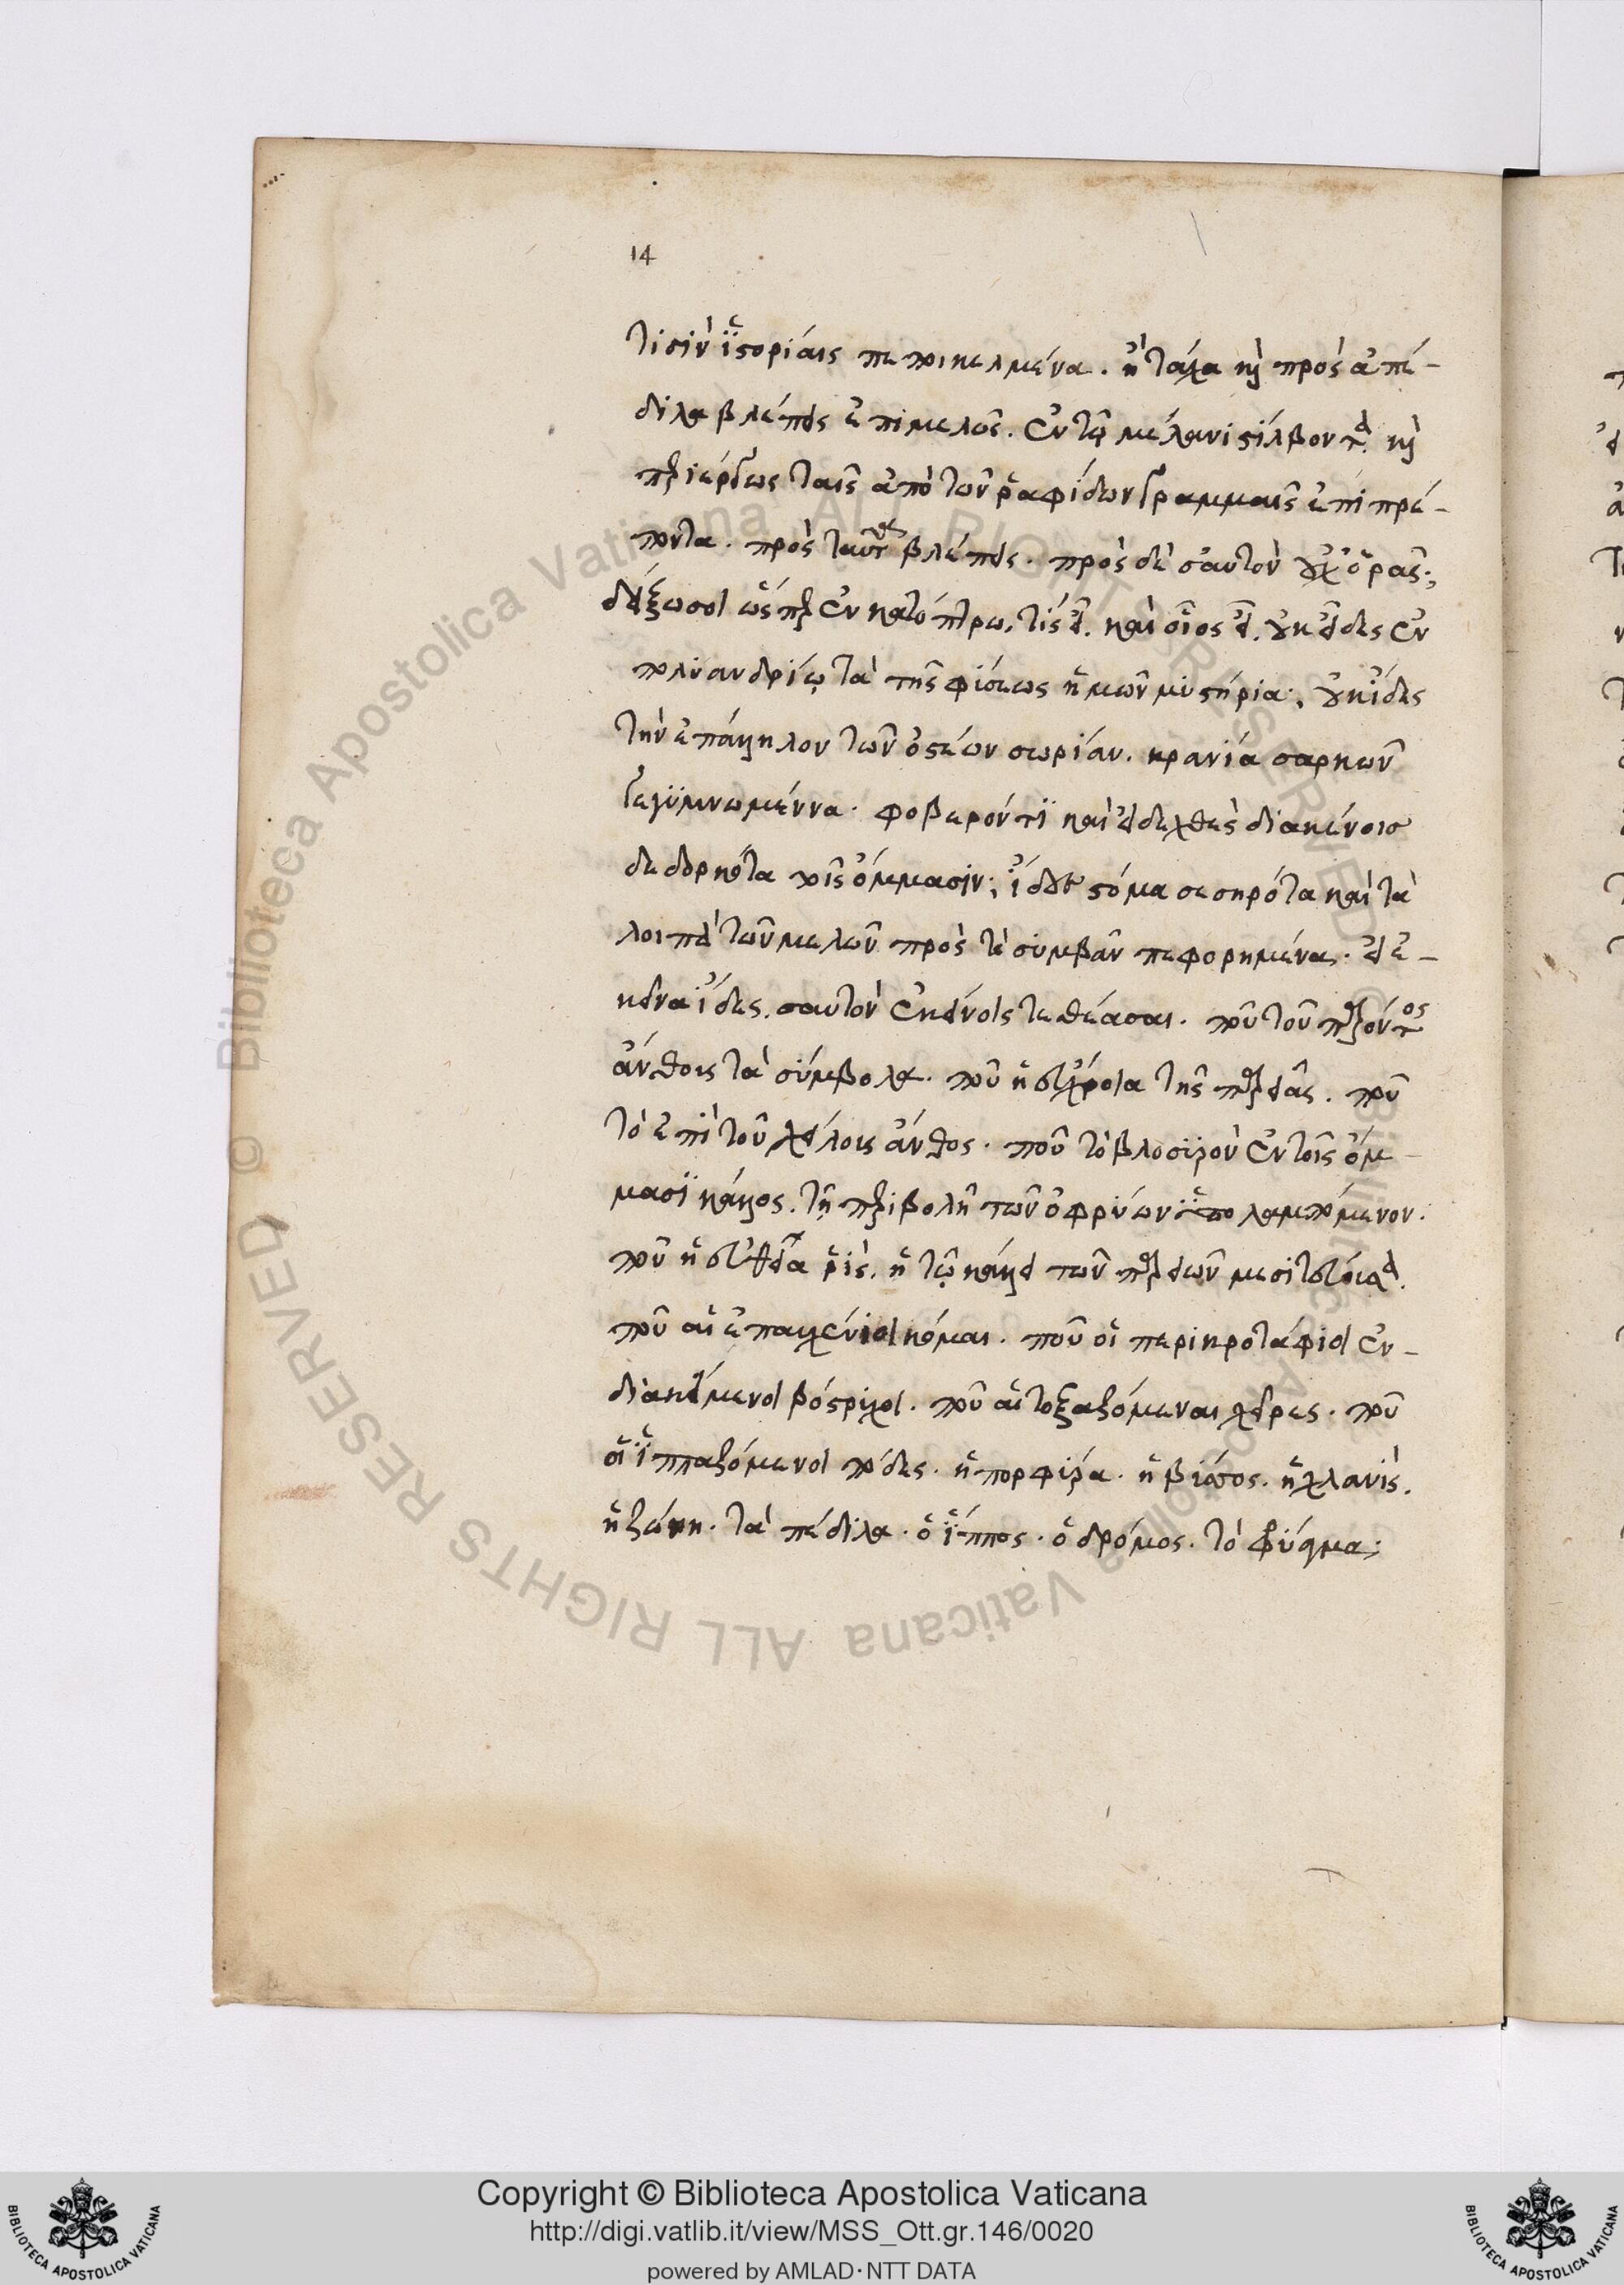 14
τισὶν ἱστορίαις πεποικιλμένα. ἢ τάχα καὶ πρὸς ἃ πέ-
διλα βλέπεις ἐπιμελῶς. ἐν τῷ μέλανι στίλβοντα. καὶ
περιέργως ταῖς ἀπὸ τῶν ῥαφίδων γραμμαῖς ἐπιπρέ-
ποντα. πρὸς ταῦτα βλέπεις. πρὸς δὲ σαυτὸν οὐχ ὁρᾷς;
δείξω σοι ὥσπερ ἐν κατόπτρω, τίς εἶ. καὶ οἷος εἶ. οὐκ εἶδες ἐν
πολυανδρίῳ τὰ τῆς φύσεως ἡμῶν μυστήρια; οὐκ ἶδες
τὴν ἐπάλληλον τῶν ὀστέων σωρίαν. κρανία σαρκῶν
γεγυμνωμέννα. φοβερόν τι καὶ εἰδεχθὲς διακένοις
δεδορκότα τοῖς ὄμμασιν; ἴδες στόμα σεσηρότα καὶ τὰ
λοιπὰ τῶν μελῶν πρὸς τὸ συμβὰν πεφορημένα. εἰ ἐ-
κεῖνα ἶδες. σαυτὸν ἐκείνοις τεθέασαι. ποῦ τοῦ παρόντος
ἄνθους τὰ σύμβολα. ποῦ ἡ εὔχροια τῆς παρειᾶς. ποῦ
τὸ ἐπὶ τοῦ χείλους ἄνθος. ποῦ τὸ βλοσυρὸν ἐν τοῖς ὄμ-
μασι κάλλος. τῇ περιβολῇ τῶν ὀφρύων ὑπολαμπόμενον.
ποῦ ἡ εὐθεῖα ῥίς. ἡ τῷ κάλλει τῶν παρειῶν μεσιτεύουσα.
ποῦ αἱ ἐπαυχένιοι κόμαι. ποῦ οἱ περικροτάφιοι ἐν-
διακείμενοι βόστρυχοι. ποῦ αἱ τοξαζόμεναι χεῖρες. ποῦ
οἱ ἱππαζόμενοι πόδες. ἡ πορφύρα. ἡ βύσσος. ἡ χλανίς.
ἡ ζώνη. τὰ πέδιλα. ὁ ἵππος. ὁ δρόμος. τὸ φρύαγμα;
© Biblioteca Apostolica Vaticana ALL RIGHTS RESERVED
Copyright © Biblioteca Apostolica Vaticana
http://digi.vatlib.it/view/MSS_Ott.gr.146/0020
powered by AMLAD·NTT DATA
BIBLIOTECA APOSTOLICA VATICANA
BIBLIOTECA APOSTOLICA VATICANA